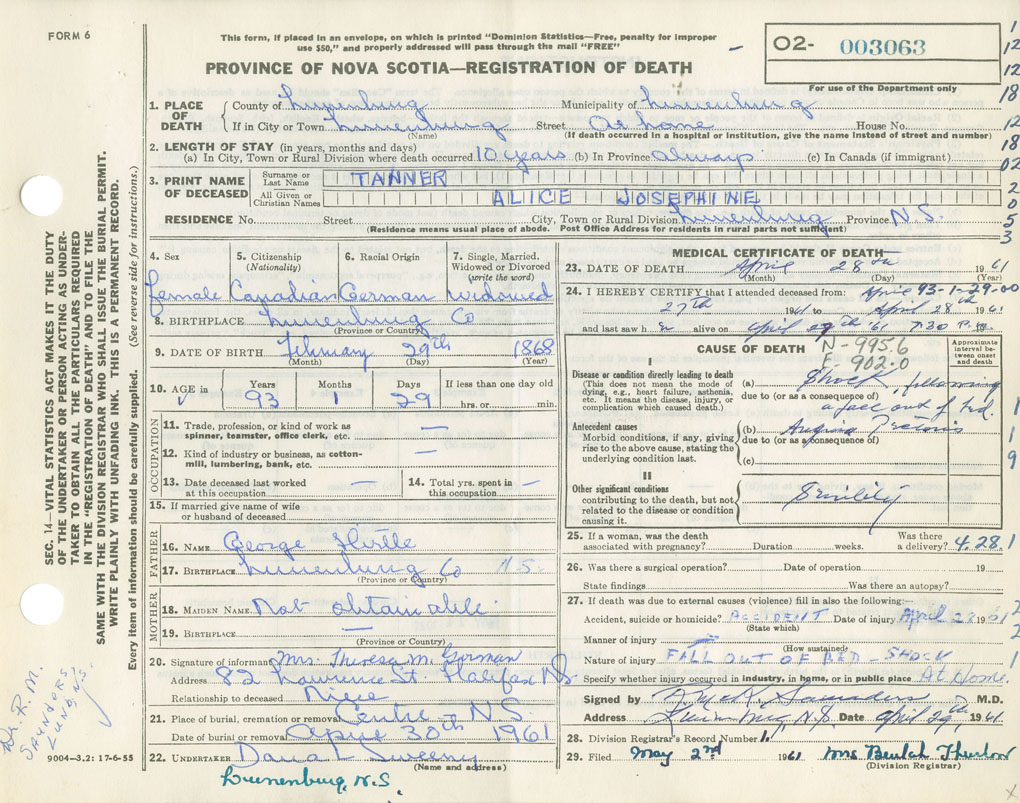 FORM 6
This form, if placed in an envelope, on which is printed "Dominion Statistics—Free, penalty for improper
use $50," and properly addressed will pass through the mail "FREE"
O2- 003063
For use of the Department only
PROVINCE OF NOVA SCOTIA—REGISTRATION OF DEATH
1. PLACE OF DEATH
County of Lunenburg Municipality of Lunenburg
If in City or Town Lunenburg Street At home House No.
(Name) (If death occurred in a hospital or institution, give the name instead of street and number)
2. LENGTH OF STAY (in years, months and days)
(a) In City, Town or Rural Division where death occurred 10 years (b) In Province always (c) In Canada (if immigrant)
3. PRINT NAME OF DECEASED
Surname or Last Name TANNER
All Given or Christian Names ALICE JOSEPHINE
RESIDENCE No. Street City, Town or Rural Division Lunenburg Province N.S.
(Residence means usual place of abode. Post Office Address for residents in rural parts not sufficient)
4. Sex female
5. Citizenship (Nationality) Canadian
6. Racial Origin German
7. Single, Married, Widowed or Divorced (write the word) widowed
8. BIRTHPLACE Lunenburg Co
(Province or Country)
9. DATE OF BIRTH February 29th 1868
(Month) (Day) (Year)
10. AGE in Years 93 Months 1 Days 29 If less than one day old hrs. or min.
OCCUPATION
11. Trade, profession, or kind of work as spinner, teamster, office clerk, etc. —
12. Kind of industry or business, as cotton-mill, lumbering, bank, etc. —
13. Date deceased last worked at this occupation —
14. Total yrs. spent in this occupation —
15. If married give name of wife or husband of deceased
FATHER
16. NAME George Hirtle
17. BIRTHPLACE Lunenburg Co N.S.
(Province or Country)
MOTHER
18. MAIDEN NAME Not obtainable
19. BIRTHPLACE —
(Province or Country)
20. Signature of informant Mrs. Theresa M. Gorman
Address 82 Lawrence St. Halifax NS
Relationship to deceased Niece
21. Place of burial, cremation or removal Centre N.S.
Date of burial or removal April 30th 1961
22. UNDERTAKER Dana L Sweeny
(Name and address)
Lunenburg, N.S.
MEDICAL CERTIFICATE OF DEATH
23. DATE OF DEATH April 28th 1961
(Month) (Day) (Year)
24. I HEREBY CERTIFY that I attended deceased from: April 93-1-29-00
27th 1961 to April 28th 1961
and last saw her alive on April 27th '61 7:30 P.M.
CAUSE OF DEATH N-995.6
E-902.0
Approximate interval between onset and death
I
Disease or condition directly leading to death
(This does not mean the mode of dying, e.g., heart failure, asthenia, etc. It means the disease, injury, or complication which caused death.)
(a) Shock following
due to (or as a consequence of)
a fall out of bed.
Antecedent causes
Morbid conditions, if any, giving rise to the above cause, stating the underlying condition last.
(b) Angina Pectoris
due to (or as a consequence of)
(c)
II
Other significant conditions
contributing to the death, but not related to the disease or condition causing it.
Senility
25. If a woman, was the death associated with pregnancy? Duration weeks. Was there a delivery? 4.28.1
26. Was there a surgical operation? Date of operation 19
State findings Was there an autopsy?
27. If death was due to external causes (violence) fill in also the following:—
Accident, suicide or homicide? ACCIDENT Date of injury April 27 1961
(State which)
Manner of injury —
(How sustained)
Nature of injury FALL OUT OF BED - SHOCK
Specify whether injury occurred in industry, in home, or in public place At Home.
Signed by R. M. Saunders M.D.
Address Lunenburg, N.S. Date April 29th 1961
28. Division Registrar's Record Number 1.
29. Filed May 2nd 1961 Mrs Beulah Thurlow
(Division Registrar)
SEC. 14—VITAL STATISTICS ACT MAKES IT THE DUTY
OF THE UNDERTAKER OR PERSON ACTING AS UNDER-
TAKER TO OBTAIN ALL THE PARTICULARS REQUIRED
IN THE "REGISTRATION OF DEATH" AND TO FILE THE
SAME WITH THE DIVISION REGISTRAR WHO SHALL ISSUE THE BURIAL PERMIT.
WRITE PLAINLY WITH UNFADING INK. THIS IS A PERMANENT RECORD.
Every item of information should be carefully supplied. (See reverse side for instructions.)
Dr. R. M.
SAUNDERS
LUNG. NS.
9004—3.2: 17-6-55
1
12
12
18
12
18
02
2
0
5
3
1
1
9
1
2
2
1
1
x